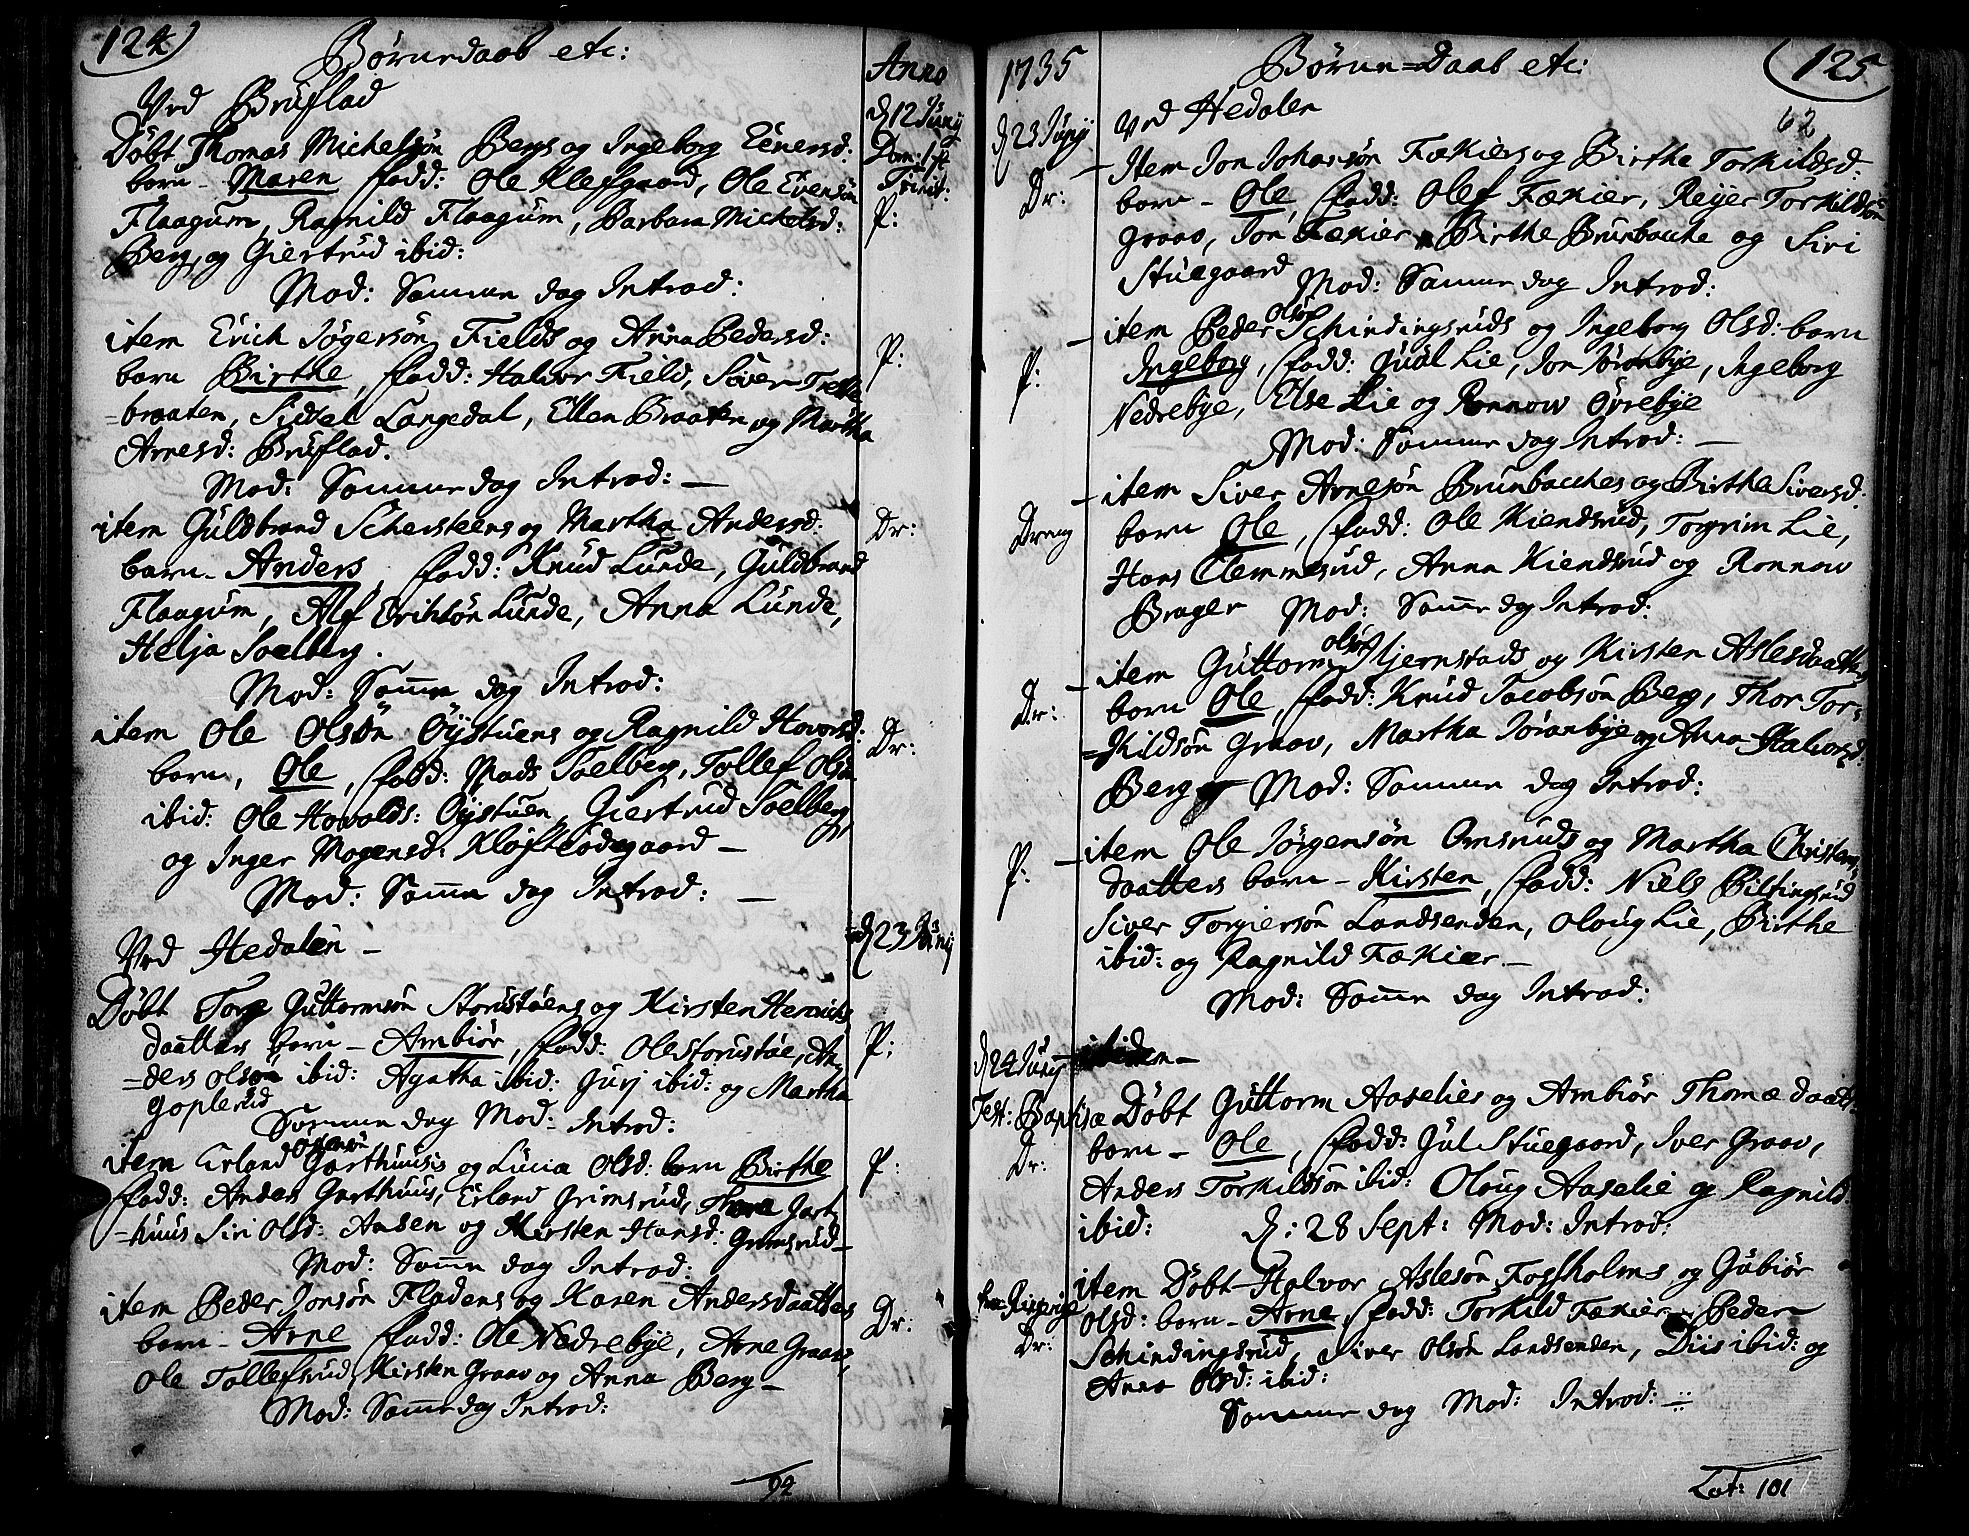 124)
Børnedaab etc:
Anno
Ved Bruflad
d. 12 Junij
Døbt Thomas Michelsøn Bergs og Ingeborg Einersd:
Dom: 1 p.
barn - Maren fadd: Ole Klefgaard, Ole Evensøn
Trinit:
Flaagum, Ragnild Flaagum, Barbara Michelsd:
P:
Berg, og Giertrud ibid:
Mod: Samme dag Introd:
item Erich Jøgersøn Fields og Anna Pedersd:
P:
barn Birthe, fadd: Halvor Field, Siver Trette
=braaten, Sidsel Langedal, Ellen Braaten og Martha
Arnesd: Bruflad.
Mod: Sammedag Introd: —
item Guldbrand Schersteens og Martha Andersd:
Dr:
barn - Anders, fadd: Knud Lunde, Guldbrand
Flaagum, Alf Erichsøn Lunde, Anna Lunde,
Helja Soelberg.
Mod: Samme dag Introd:
item Ole Olsøn Øystuens og Ragnild Havorsd:
Dr:
barn, Ole, fadd: Mads Soelberg, Tollef Olsøn
ibid: Ole Hovolds: Øystuen, Giertrud Soelberg,
og Inger Mogensd: Kløftødegaard —
Mod: Samme dag Introd: —
d. 23 Junij
Ved Hedalen —
Døbt Tore Guttormsøn Storustøens og Kirsten Henrichs
daatters barn - Ambiør, fadd: Ole Storustøe, An
P:
=ders Olsøn ibid: Agatha ibid: Gurj ibid: og Martha
Goplerud
Samme dag Mod: Introd:
item Erland Olsøn Garthuusis og Lucia Olsd: barn Birthe
P:
fadd: Anders Garthuus, Erland Grimsrud, Thore Gart
=huus Siri Olsd: Ansen og Kirsten Hansd: Grimsrud —
Mod: Samme dag Introd:
item Peder Jonsøn Fladens og Karen Andersdaatters
Dr:
barn - Arne fadd: Ole Nedrebye, Arne Graav,
Ole Tollefsrud, Kirsten Graav og Anna Berg —
Mod: Samme dag Introd:
92
1735
Børne=Daab etc:
(125
62
d 23 Junij
Ved Hedalen
- Item Jon Johansøn Fækiers og Birthe Torkildsd:
Dr:
barn - Ole, fadd: Olef Fækier, Reyer Torkildsøn
Graav, Jon Fækier, Birthe Brunbache og Siri
Stuegaard Mod: Samme dag Introd:
- item Peder Olsøn Schindingsruds og Ingeborg Olsd: barn
P:
Ingeborg, fadd: Gual Lie, Jon Jøranbye, Ingeborg
Nedrebye, Else Lie og Ronnow Øvrebye
Mod: Samme dag Introd: —
- item Siver Arnesøn Brunbaches og Birthe Siversd:
Dreng
barn Ole, fadd: Ole Kiendsrud, Torgrim Lie,
Hans Clemmesrud, Anna Kiendsrud og Ronnow
Brager Mod: Samme dag Introd:
- item Guttorm Olsøn Mjernstads og Kirsten Aslesdaatters
Dr:
barn Ole, fadd: Knud Jacobsøn Berg, Thor Tor=
=kildsøn Graav, Martha Jøranbye og Anna Halvorsd:
Berg Mod: Samme dag Introd:
- item Ole Jørgensøn Omsruds og Martha Christens
P:
daatters barn - Kirsten, fadd: Niels Biltingsrud
Siver Torgiersøn Landsenden, Oloug Lie, Birthe
ibid: og Ragnild Fækier —
Mod: Samme dag Introd:
d. 24 Junij ibidem —
Fest: Baptisæ Døbt Guttorm Aaselies og Ambiør Thomædaatt:
Dr:
barn - Ole, fadd: Gul Stuegaard, Iver Graav,
Anders Torkildsøn ibid: Oloug Aaselie og Ragnild
ibid: d: 28 Sept: Mod: Introd:
item Døbt Halvor Aslesøn Fosholms og Gubiør
Dr:
Olsd: barn - Arne, fadd: Torkild Fækier, Peder
Schindingsrud, Siver Olsøn Landsenden, Diis ibid: og
Anne Olsd: ibid:
Samme dag Mod: Introd: —
Lat: 101